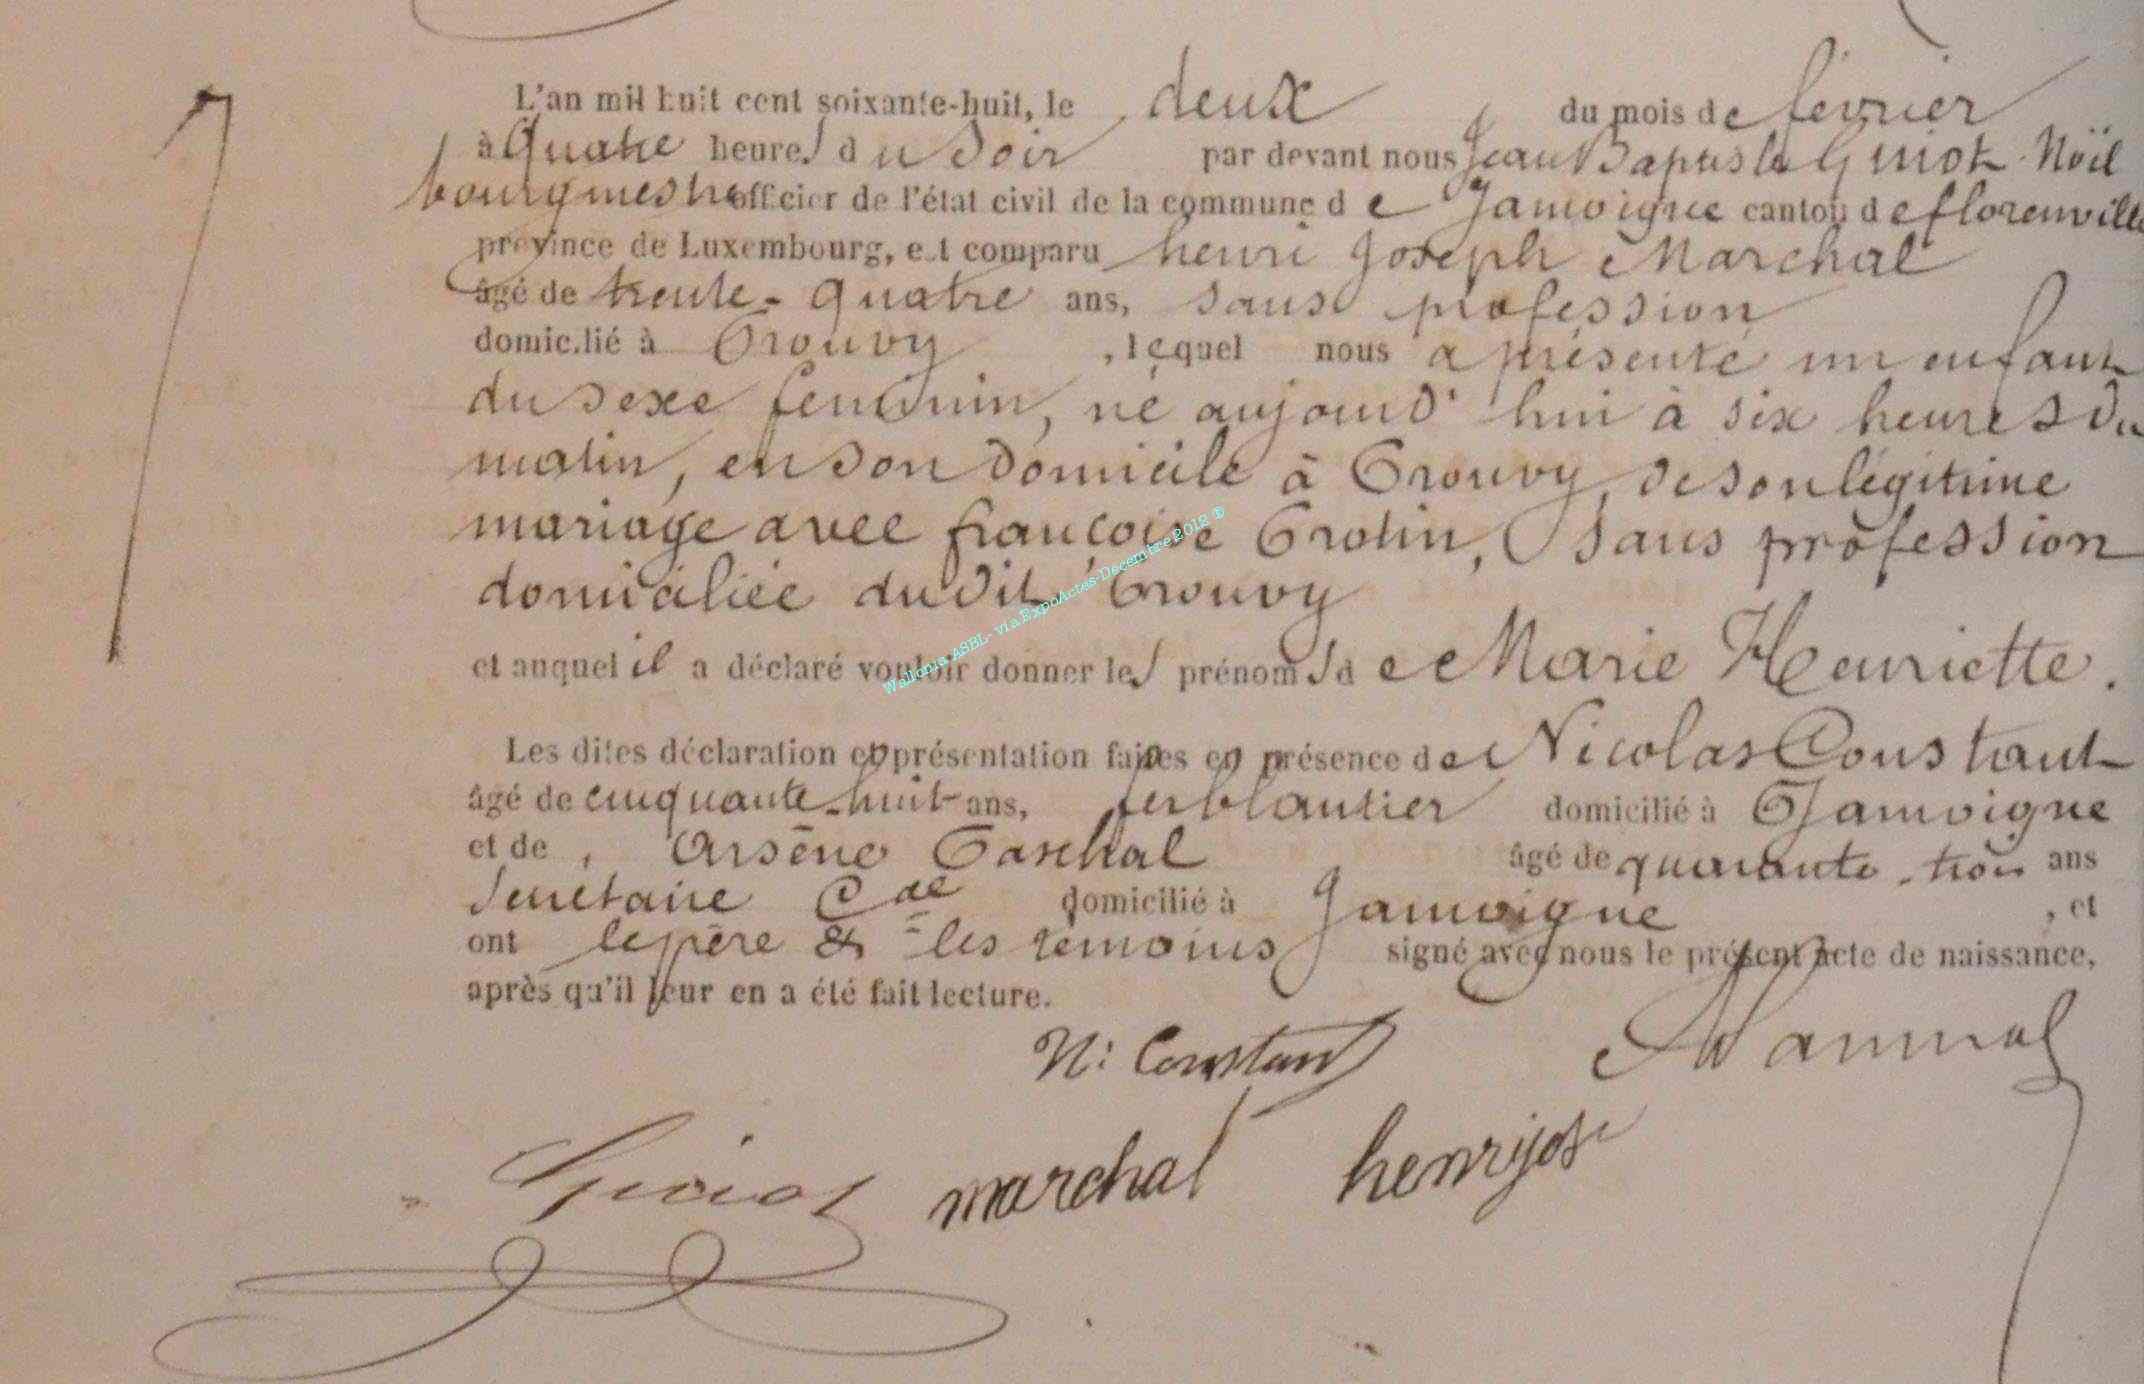 L'an mil huit cent soixante-huit, le deux du mois de février
à Quatre heures du Soir par devant nous Jean Baptiste Guiot Noël
bourgmestre officier de l'état civil de la commune de Jamoigne canton de florenville
province de Luxembourg, est comparu henri Joseph Marchal
âgé de trente-quatre ans, sans profession
domicilié à Prouvy, lequel nous a présenté un enfant
du sexe feminin, né aujourd'hui à six heures du
matin, en son domicile à Prouvy, de son légitime
mariage avec françoise Protin, sans profession
domiciliée dudit Prouvy
et auquel il a déclaré vouloir donner les prénoms de Marie Henriette.
Les dites déclaration et présentation faites en présence de Nicolas Constant
âgé de cinquante-huit ans, ferblantier domicilié à Jamoigne
et de, Arsène Paschal âgé de quarante-trois ans
Secrétaire Cal domicilié à Jamoigne, et
ont le père & les témoins signé avec nous le présent acte de naissance,
après qu'il leur en a été fait lecture.
N: Constant
Guiot marchal henrijos
Wallonia ASBL- via ExpoActes-Decembre 2012 ©